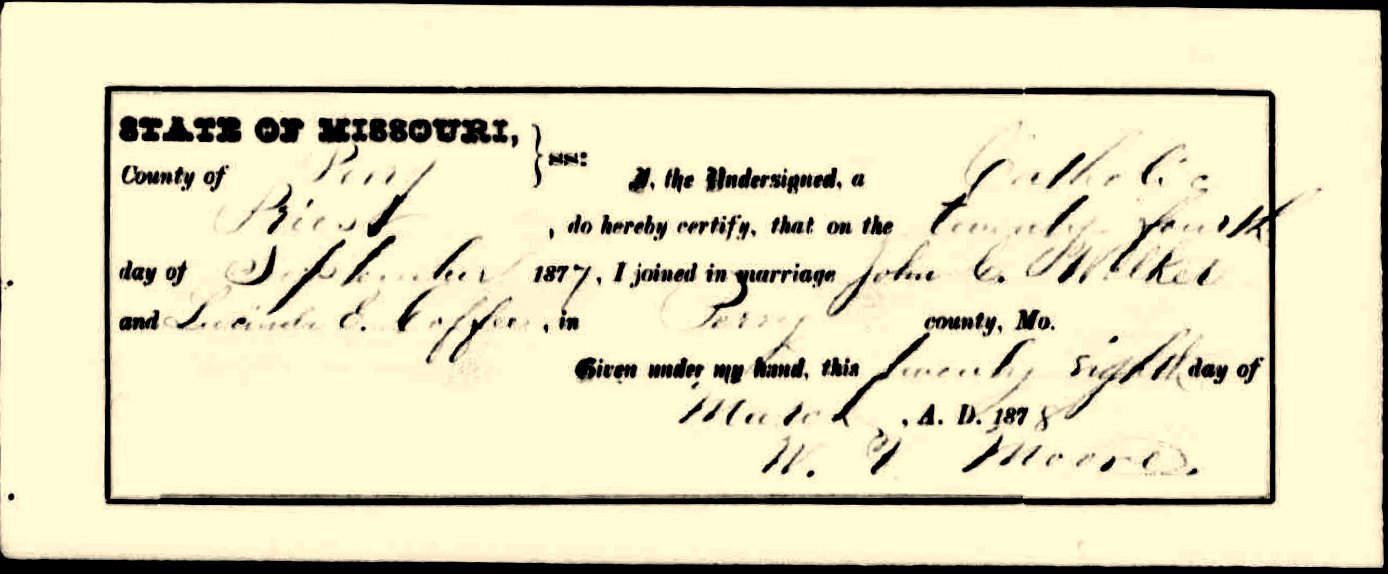 STATE OF MISSOURI,
County of Perry } ss: I, the Undersigned, a Catholic
Priest, do hereby certify, that on the twenty fourth
day of September 1877, I joined in marriage John C. Walker
and Lucinda E. Coffer, in Perry county, Mo.
Given under my hand, this twenty eighth day of
March, A. D. 1878
W. T. Moore.